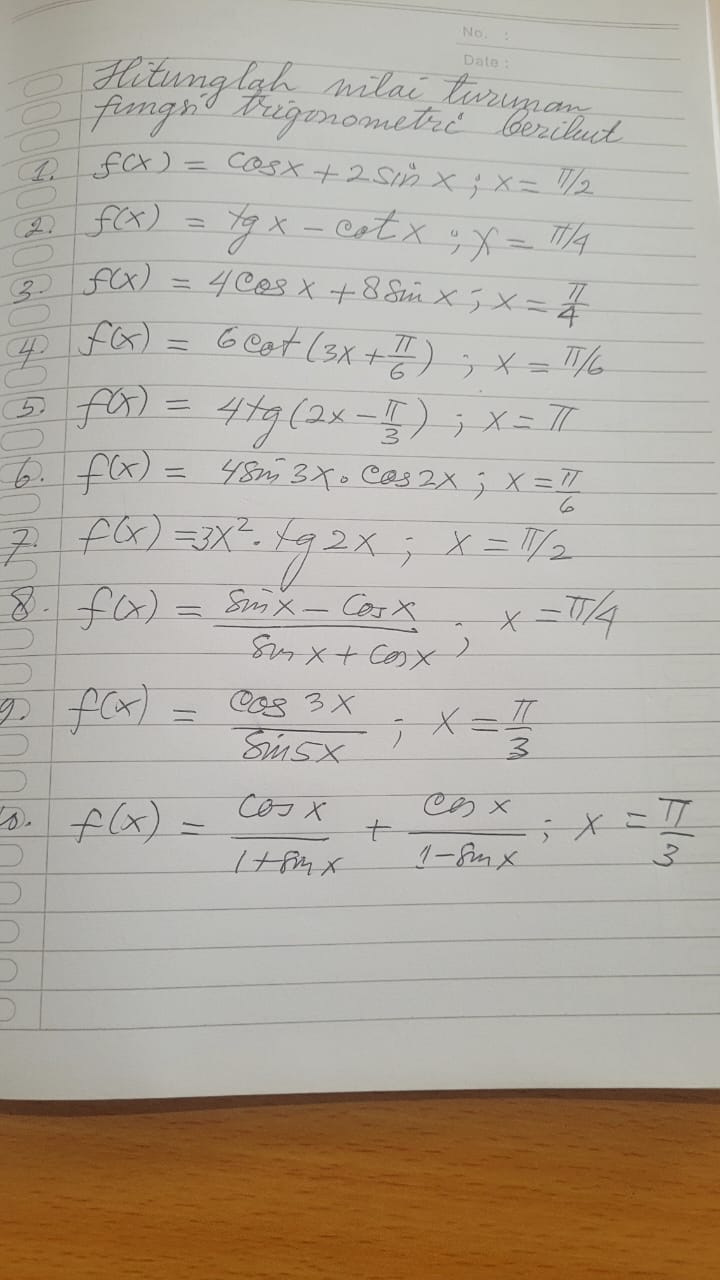 No. :
Date :
Hitunglah nilai turunan
fungsi trigonometri berikut
1. f(x) = cosx + 2 sin x ; x = π/2
2. f(x) = tg x - cot x ; x = π/4
3. f(x) = 4 cos x + 8 sin x ; x = π/4
4. f(x) = 6 cot (3x + π/6) ; x = π/6
5. f(x) = 4 tg (2x - π/3) ; x = π
6. f(x) = 4 sin 3x . cos 2x ; x = π/6
7. f(x) = 3x². tg 2x ; x = π/2
8. f(x) = (sin x - cos x)/(sin x + cos x) ; x = π/4
9. f(x) = cos 3x/sin 5x ; x = π/3
10. f(x) = cos x/(1 + sin x) + cos x/(1 - sin x) ; x = π/3